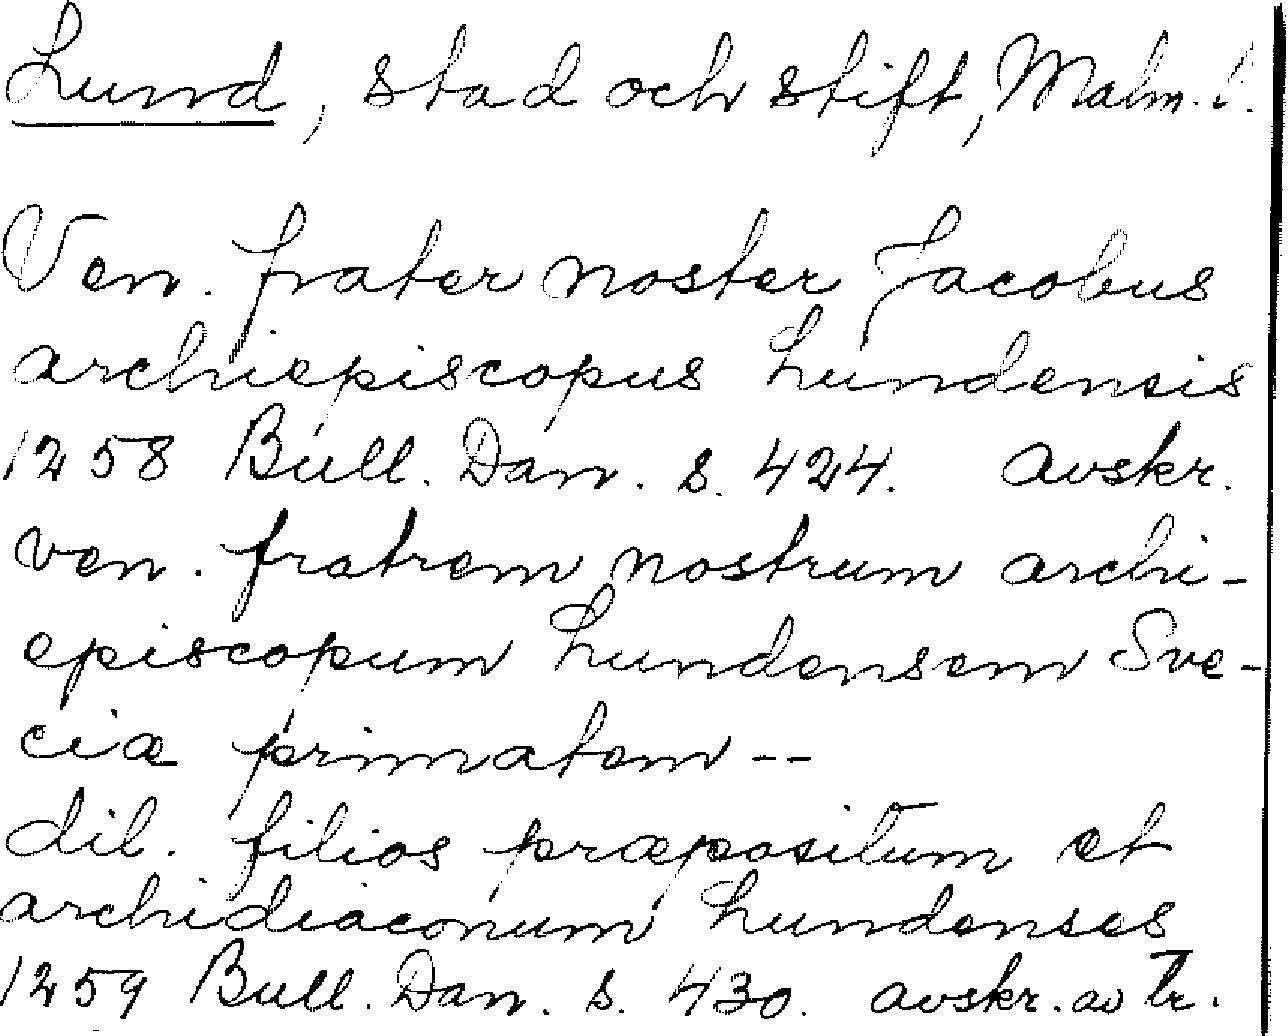 Lund, stad och stift, Malm. l.
Ven. frater noster Jacobus
archiepiscopus Lundensis
1258 Bull. Dan. s. 424. avskr.
ven. fratrem nostrum archi-
episcopum Lundensem Sve-
ciæ primatem --
dil. filios præpositum et
archidiaconum Lundenses
1259 Bull. Dan. s. 430. avskr. av tr.